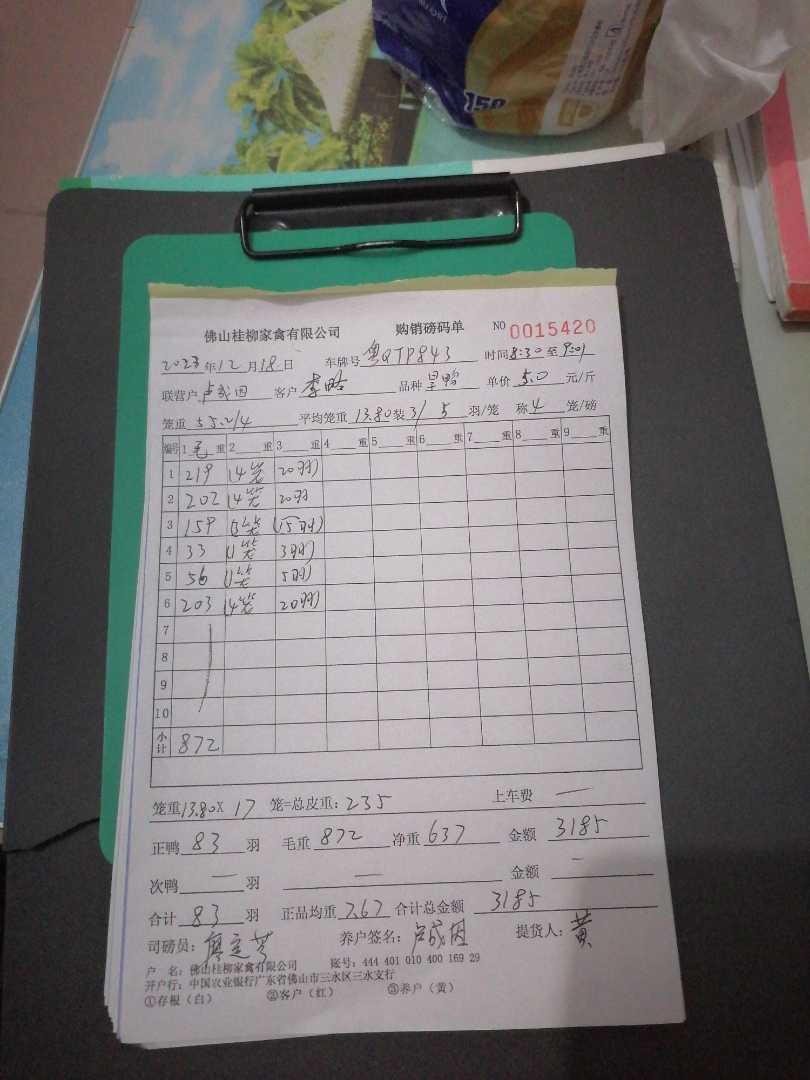 150
佛山桂柳家禽有限公司 购销磅码单 NO 0015420
2023年12月18日 车牌号 粤QTP843 时间8:30至9:01
联营户 卢成因 客户 李 品种 鸭 单价 5.0 元/斤
笼重 55.2/4 平均笼重 13.80 装 3/5 羽/笼 称 4 笼/磅
编号 1 毛 重 2 重 3 重 4 重 5 重 6 重 7 重 8 重 9 重
1 219 (4笼 20羽)
2 202 (4笼 20羽
3 159 (3笼 (15羽)
4 33 (1笼 3羽)
5 56 (1笼 5羽)
6 203 (4笼 20羽)
7
8
9
10
小计 872
笼重13.80X 17 笼=总皮重：235 上车费 一
正鸭 83 羽 毛重 872 净重 637 金额 3185
次鸭 一 羽 一 金额 一
合计 83 羽 正品均重 7.67 合计总金额 3185
司磅员： 养户签名：卢成因 提货人：黄
户 名：佛山桂柳家禽有限公司 账号：444 401 010 400 169 29
开户行：中国农业银行广东省佛山市三水区三水支行
①存根（白） ②客户（红） ③养户（黄）